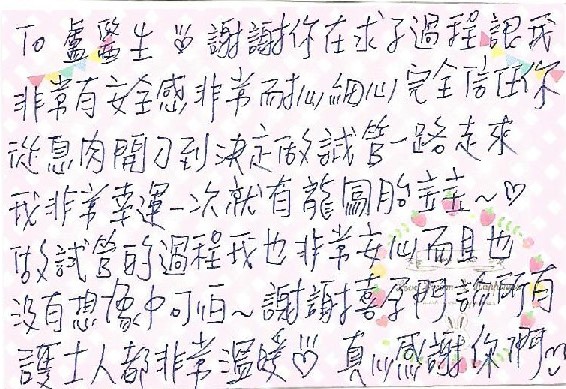 To 盧醫生 ♡ 謝謝你在求子過程讓我
非常有安全感非常耐心細心完全信任你
從息肉開刀到決定做試管一路走來
我非常幸運一次就有龍鳳胎寶寶~♡
做試管的過程我也非常安心而且也
沒有想像中可怕~謝謝禧孕門診所有
護士人都非常溫暖♡ 真心感謝你們♡